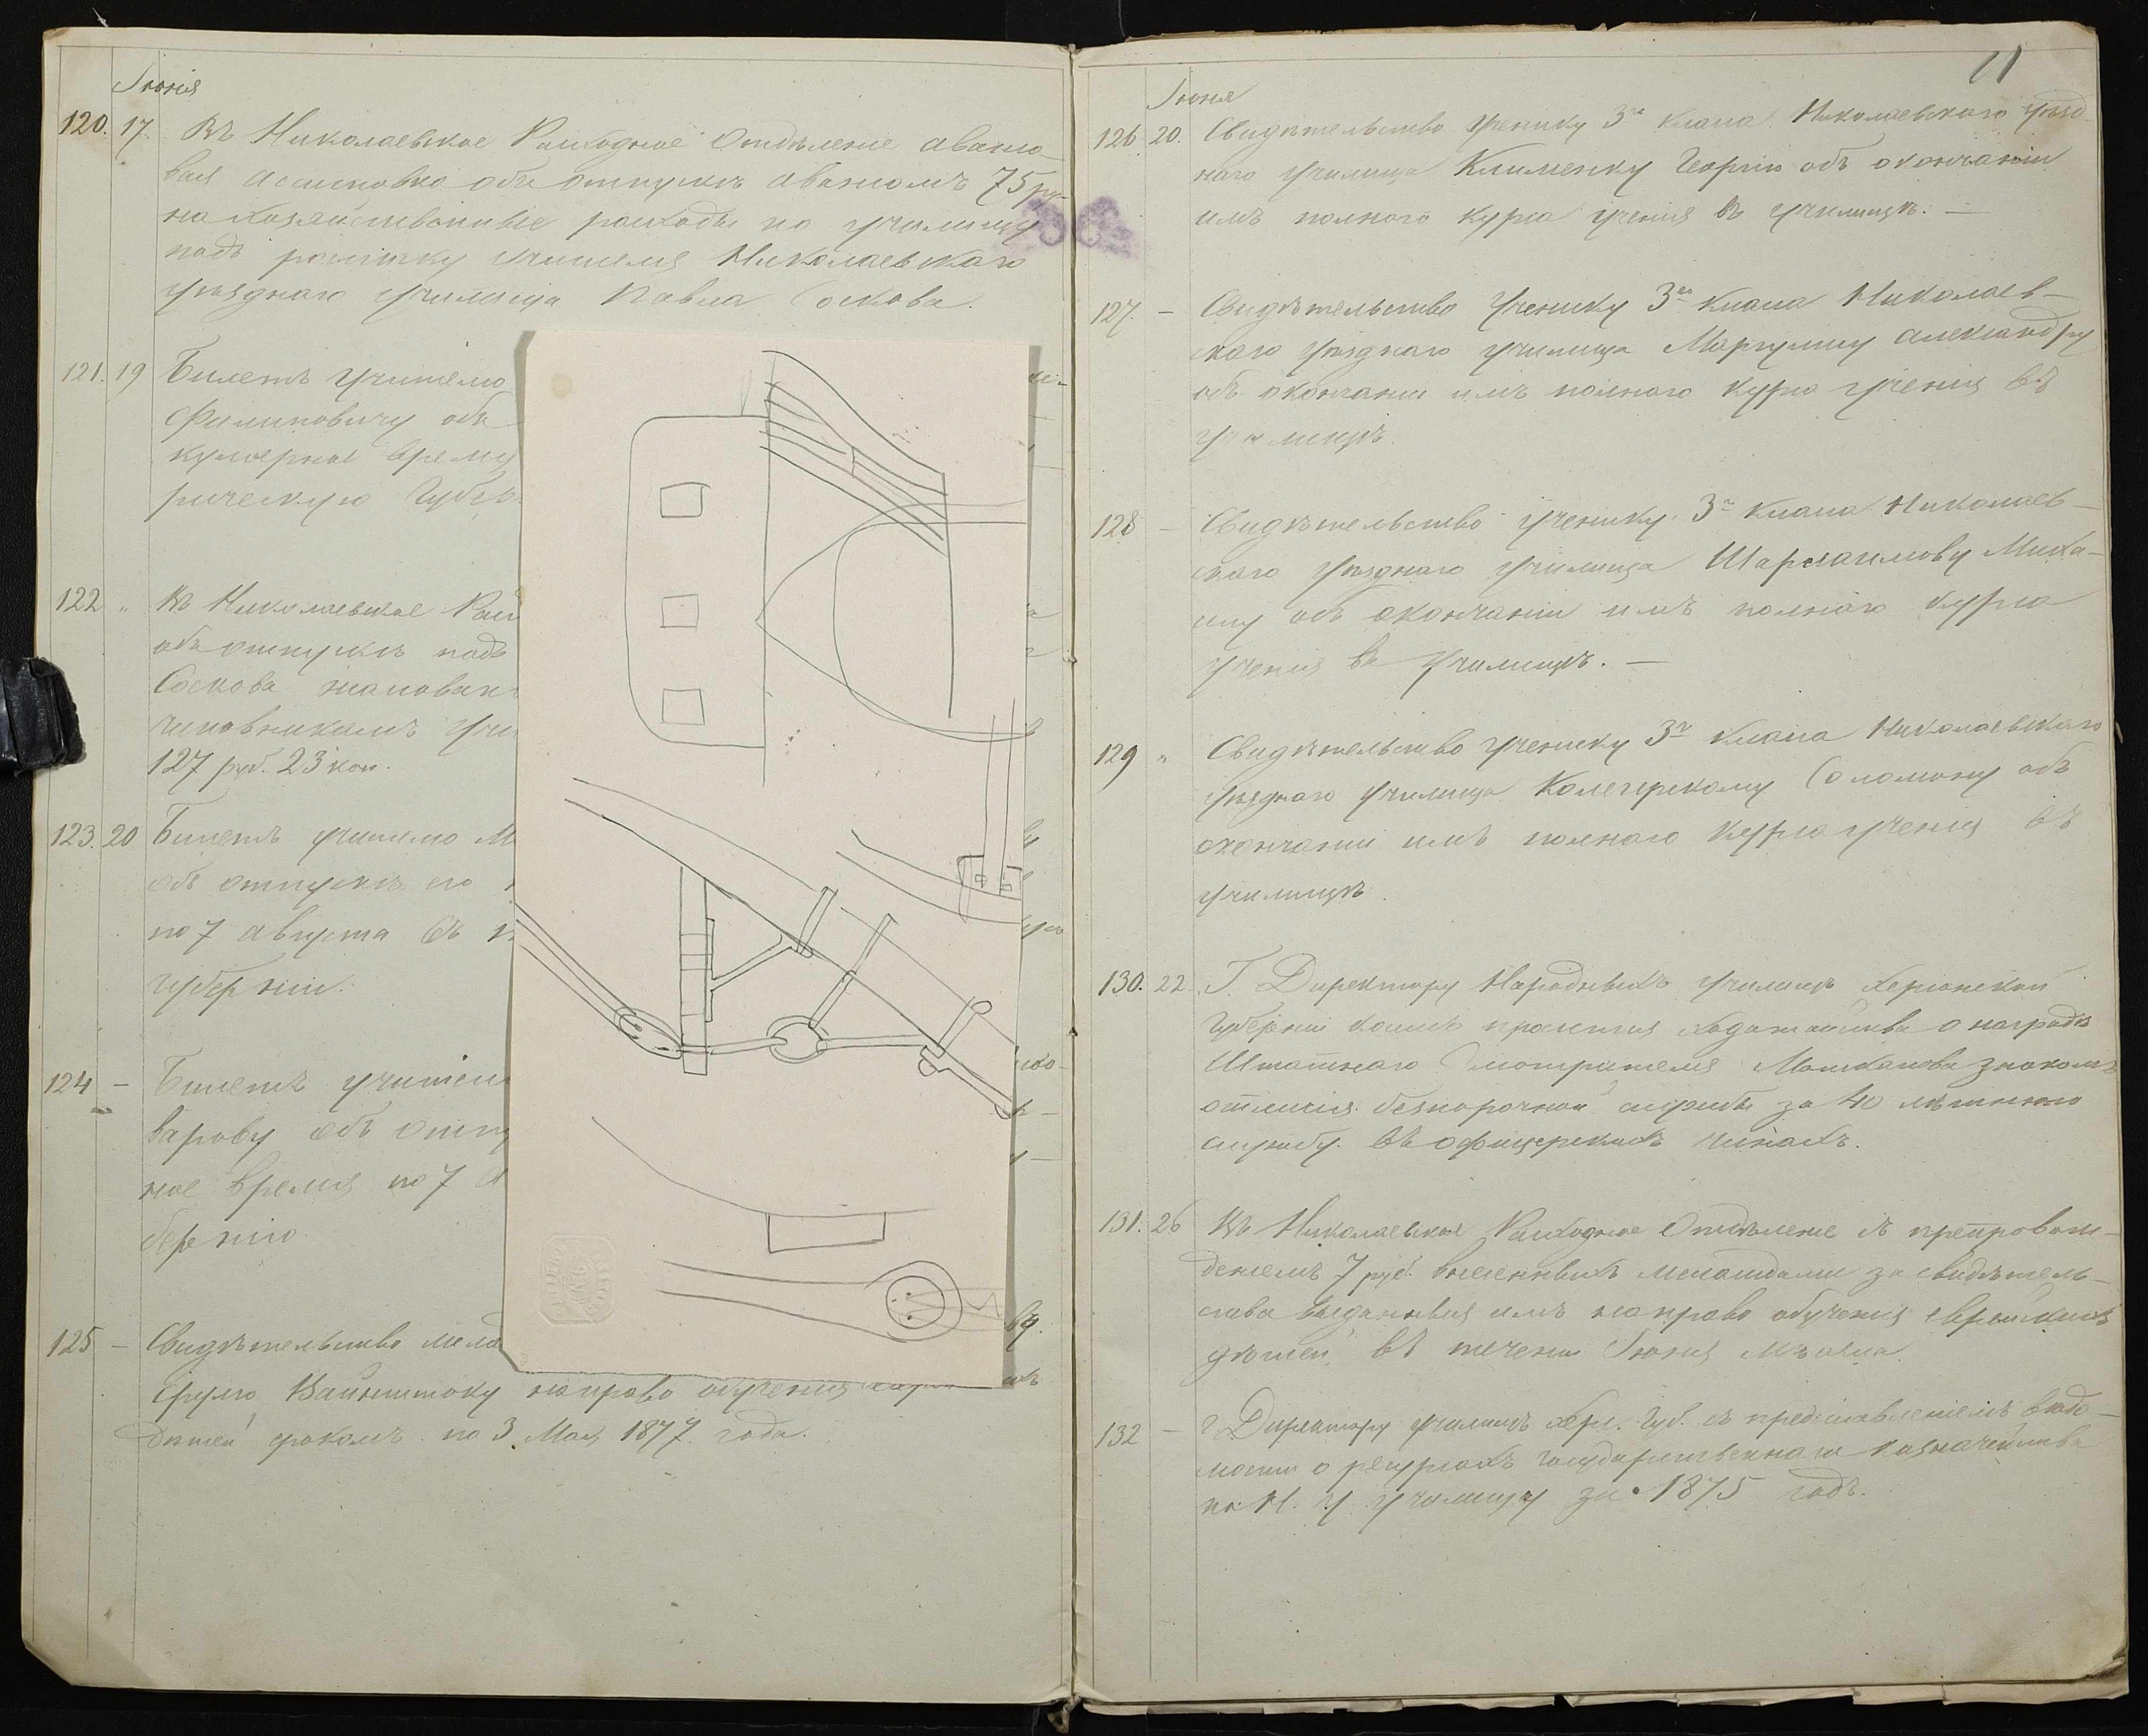 Іюнія
120. 17. Въ Николаевское Расходное Отдѣленіе авансо-
вая ассигновка объ отпускѣ авансомъ 75 ру.
на хозяйственные расходы по училищу
подъ росписку учителя Николаевскаго
уѣзднаго училища Павла Соскова.
121. 19 Билетъ учителю
Филиповичу объ
время
рическую Губер
122 " Въ Николаевское Рас
объ отпускѣ подъ
Соскова жалован
чиновникамъ учи
127 руб. 23 коп.
123. 20 Билетъ учителю М
объ отпускѣ его
по 7 августа въ
губерніи.
124 — Билетъ учителю
варову объ отпу
ное время по 7 А
бернію
125 — Свидѣтельство мела
Вайнштоку на право обученія
дѣтей срокомъ по 3 Мая 1877 года.
11
Іюня
126 20. Свидѣтельство ученику 3го класса Николаевскаго уѣзд
наго училища Клименку Георгію объ окончаніи
имъ полнаго курса ученія въ училищѣ. —
127. — Свидѣтельство ученику 3го класса Николаев-
скаго уѣзднаго училища Маргулису Александру
объ окончаніи имъ полнаго курса ученія въ
училищѣ.
128 — Свидѣтельство ученику 3го класса Николаев-
скаго уѣзднаго училища Миха-
илу объ окончаніи имъ полнаго курса
ученія въ училищѣ. —
129 " Свидѣтельство ученику 3го класса Николаевскаго
уѣзднаго училища Соломону объ
окончаніи имъ полнаго курса ученія въ
училищѣ.
130. 22. Г. Директору Народныхъ училищъ Херсонской
Губерніи ходатайства о наградѣ
Штатнаго Смотрителя знакомъ
отличія безпорочной службы за 40 лѣтнюю
службу въ офицерскихъ чинахъ.
131. 26 Въ Николаевское Расходное Отдѣленіе съ препровож-
деніемъ 7 руб. внесенныхъ меламдами за свидѣтель-
ства выданныя имъ на право обученія еврейскихъ
дѣтей, въ теченіи Іюня мѣсяца.
132 — Г Директору училищъ Херс. Губ. съ представленіемъ вѣдо-
мости о расходахъ Государственнаго Казначейства
по Н. У. училищу за 1875 годъ.